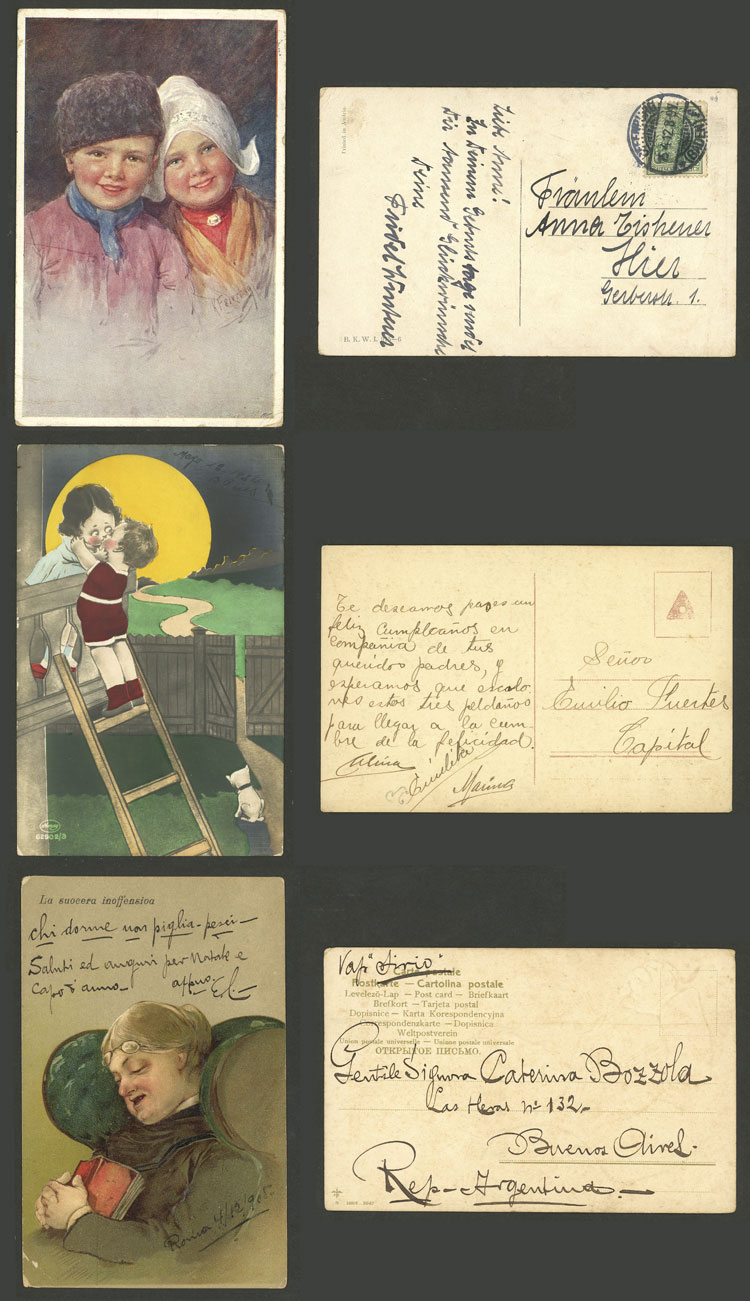 Liebe Anna!
Zu Deinem Geburtstage
Dir
Deine
Fräulein
Anna
Hier
Gerberstr. 1.
B. K. W. I. -6
Te deseamos pases un
feliz cumpleaños en
compañia de tus
queridos padres, y
esperamos que escalo-
nes estos tres peldaños
para llegar a la cum-
bre de la felicidad.
Emilita
Marina
Señor
Emilio Fuertes
Capital
6290 2/3
La suocera inoffensiva
chi dorme non piglia-pesci-
Saluti ed auguri per Natale e
Capo d'anno- affmo.
Roma 4/12/905.
Vap "Sirio"
Carte postale
Postkarte — Cartolina postale
Levelező-Lap — Post card — Briefkaart
Brefkort — Tarjeta postal
Dopisnice — Karta Korespondencyjna
Korrespondenzkarte — Dopisnica
Weltpostverein
Union postale universelle — Unione postale universale
ОТКРЫТОЕ ПИСЬМО.
Gentile Signora Caterina Bozzola
Las Heras nº 132-
Buenos Aires.
Rep-Argentina-